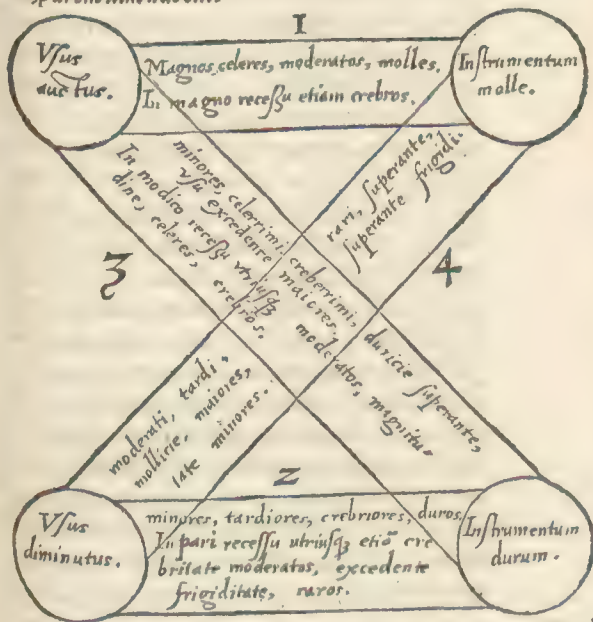 1
Vſus
auctus.
Magnos, celeres, moderatos, molles.
In magno receſſu etiam crebros.
Inſtrumentum
molle.
minores, celerrimi, creberrimi, duricie ſuperante,
vſu excedente maiores.
In modico receſſu vtriuſqꝫ moderatos, magnitu-
dine, celeres, crebros.
3
4
moderati, tardi, rari, ſuperante,
mollicie, maiores, ſuperante frigidi-
tate minores.
2
Vſus
diminutus.
minores, tardiores, crebriores, duros.
In pari receſſu utriuſqꝫ etiã cre
britate moderatos, excedente
frigiditate, raros.
Inſtrumentum
durum.